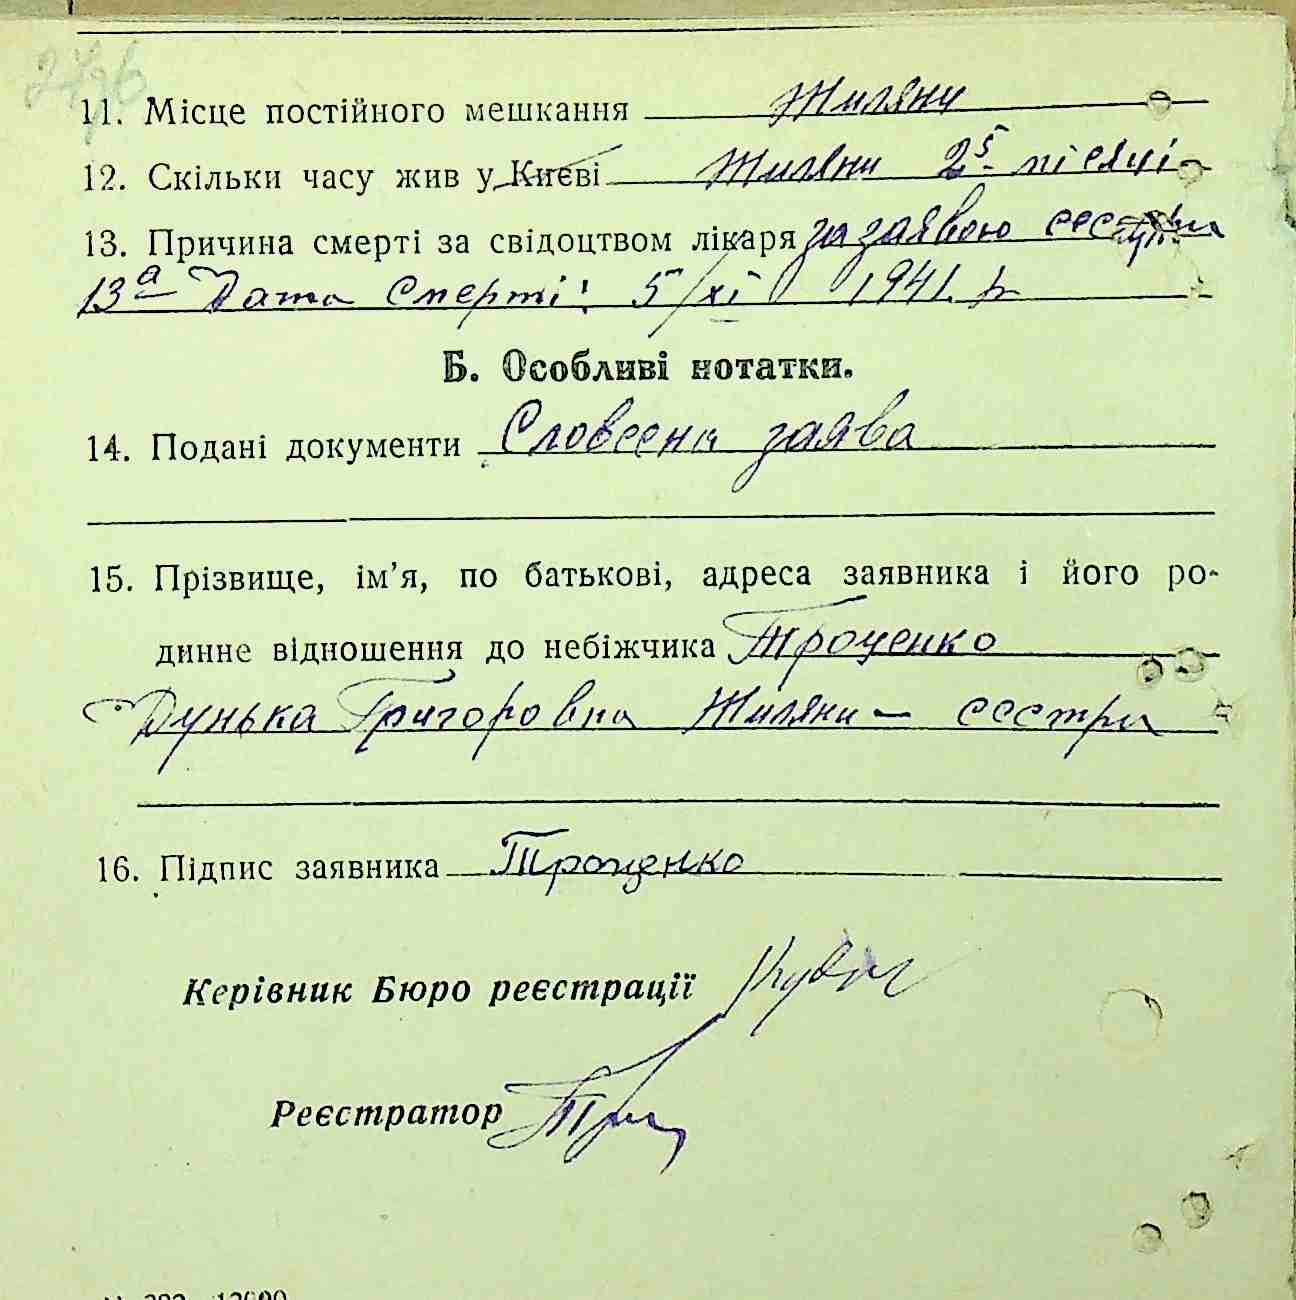 11. Місце постійного мешкання Жиляни
12. Скільки часу жив у Києві Жиляни 2 5 місяці
13. Причина смерті за свідоцтвом лікаря за заявою сестри
13а Дата смерті: 5/XI 1941 р
Б. Особливі нотатки.
14. Подані документи Словесна заява
15. Прізвище, ім’я, по батькові, адреса заявника і його ро-
динне відношення до небіжчика Троценко
Дунька Григоровна Жиляни – сестра
16. Підпис заявника Троценко
Керівник Бюро реєстрації
Реєстратор